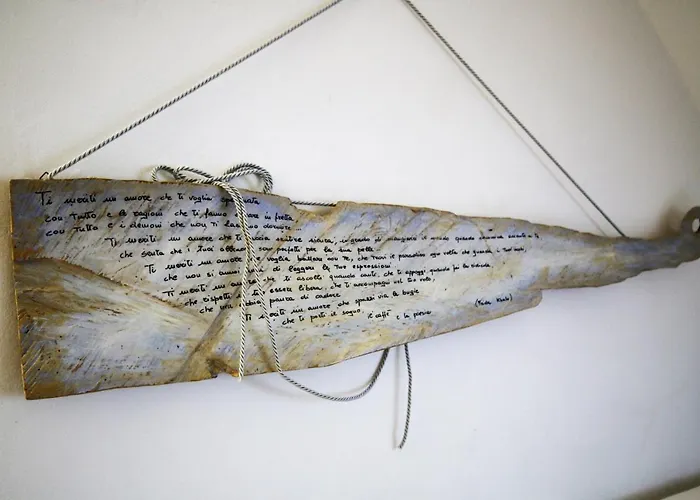 Ti meriti un amore che ti voglia spettinata
con tutto e le ragioni che ti fanno alzare in fretta,
con tutto e i demoni che non ti lasciano dormire.
Ti meriti un amore che ti faccia sentire sicura, in grado di mangiarsi il mondo quando cammina accanto a te
che senta che i tuoi abbracci sono perfetti per la sua pelle.
Ti meriti un amore che voglia ballare con te, che trovi il paradiso ogni volta che guarda i tuoi occhi,
che non si annoi mai di leggere le tue espressioni.
Ti meriti un amore che ti ascolti quando canti, che ti appoggi quando fai la ridicola,
che rispetti il tuo essere libera, che ti accompagni nel tuo volo,
che non abbia paura di cadere.
Ti meriti un amore che spazzi via le bugie
che ti porti il sogno, il caffè e la poesia
(Frida Kahlo)